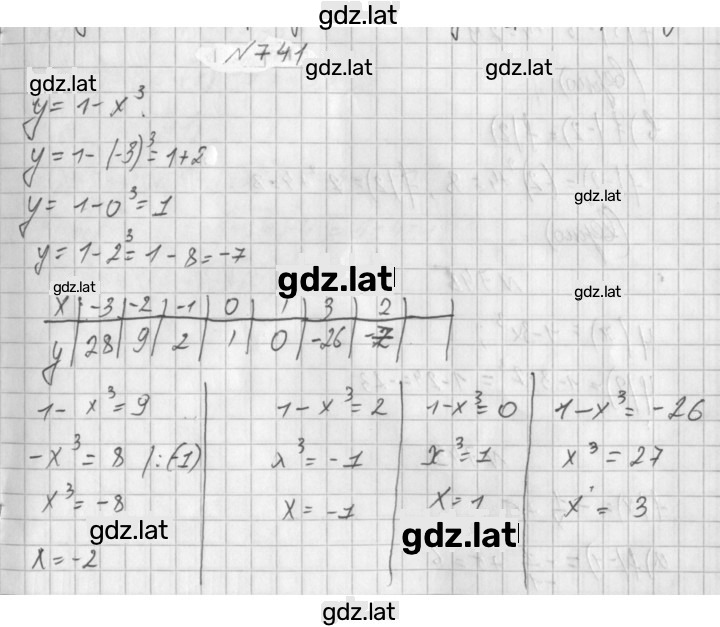 gdz.lat
N741
gdz.lat gdz.lat
gdz.lat
y = 1 - x³
y = 1 - (-3)³ = 1 + 2
y = 1 - 0³ = 1
gdz.lat
y = 1 - 2³ = 1 - 8 = -7
gdz.lat gdz.lat gdz.lat
x -3 -2 -1 0 1 3 2
y 28 9 2 1 0 -26 -7
1 - x³ = 9 1 - x³ = 2 1 - x³ = 0 1 - x³ = -26
-x³ = 8 /:(-1) x³ = -1 x³ = 1 x³ = 27
x³ = -8 x = -1 x = 1 x = 3
gdz.lat gdz.lat
x = -2
gdz.lat